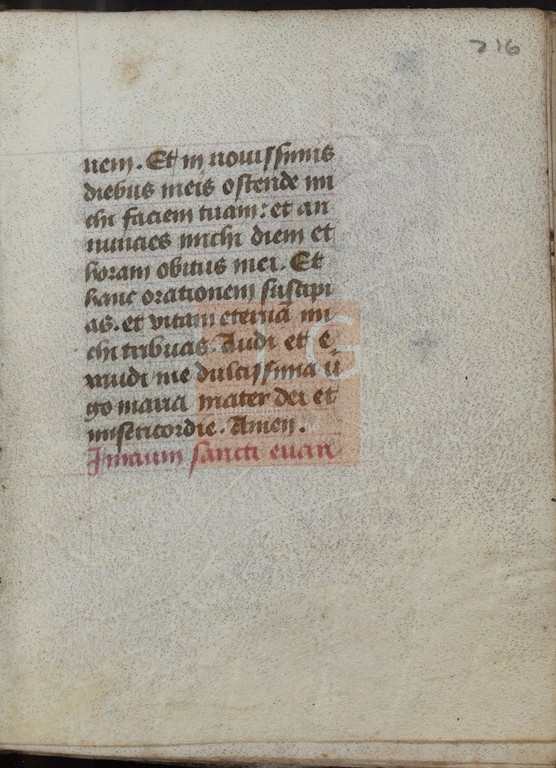 216
nem. Et in nouissimis
diebus meis ostende mi
chi faciem tuam: et an
nuncies michi diem et
horam obitus mei. Et
hanc orationem suscipi
as. et vitam eternā mi
chi tribuas. Audi et e
xaudi me dulcissima ū
go maria mater dei et
misericordie. Amen.
Inicium sancti euan